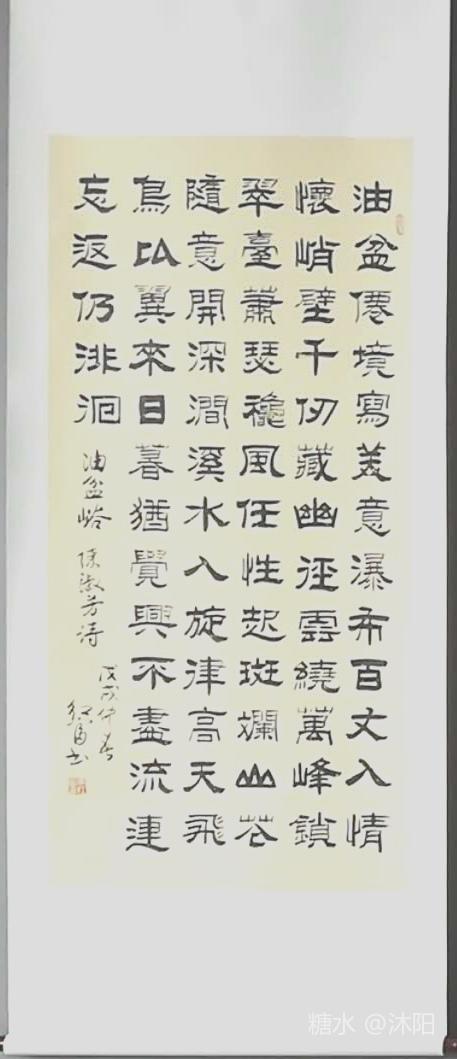 油盆僊境寫美意瀑布百丈入情
懷峭壁千仞藏幽徑雲繞萬峰鎖
翠臺蕭瑟穐風任性起斑斕山花
隨意開深澗溪水入旋律高天飛
鳥以翼來日暮猶覺興不盡流連
忘返仍徘徊
油盆峪 陳淑芳詩
戊戌仲春
書
糖水 @沐阳